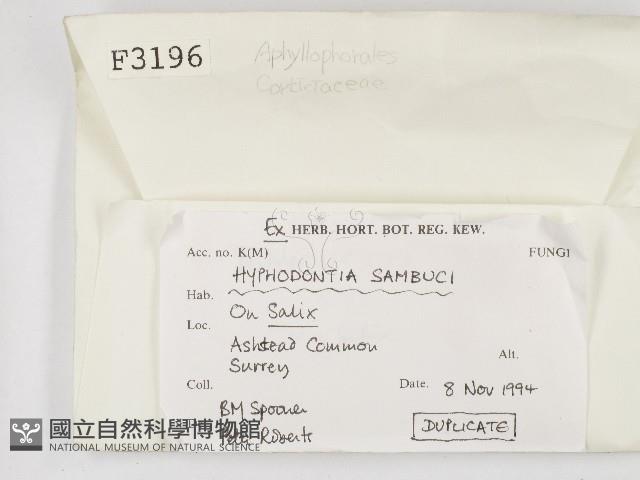 F3196
Aphyllophorales
Corticiaceae
Ex HERB. HORT. BOT. REG. KEW.
Acc. no. K(M) FUNGI
HYPHODONTIA SAMBUCI
Hab. On Salix
Loc. Ashtead Common
Surrey Alt.
Coll. Date. 8 Nov 1994
BM Spooner
Peter Roberts
DUPLICATE
國立自然科學博物館
NATIONAL MUSEUM OF NATURAL SCIENCE